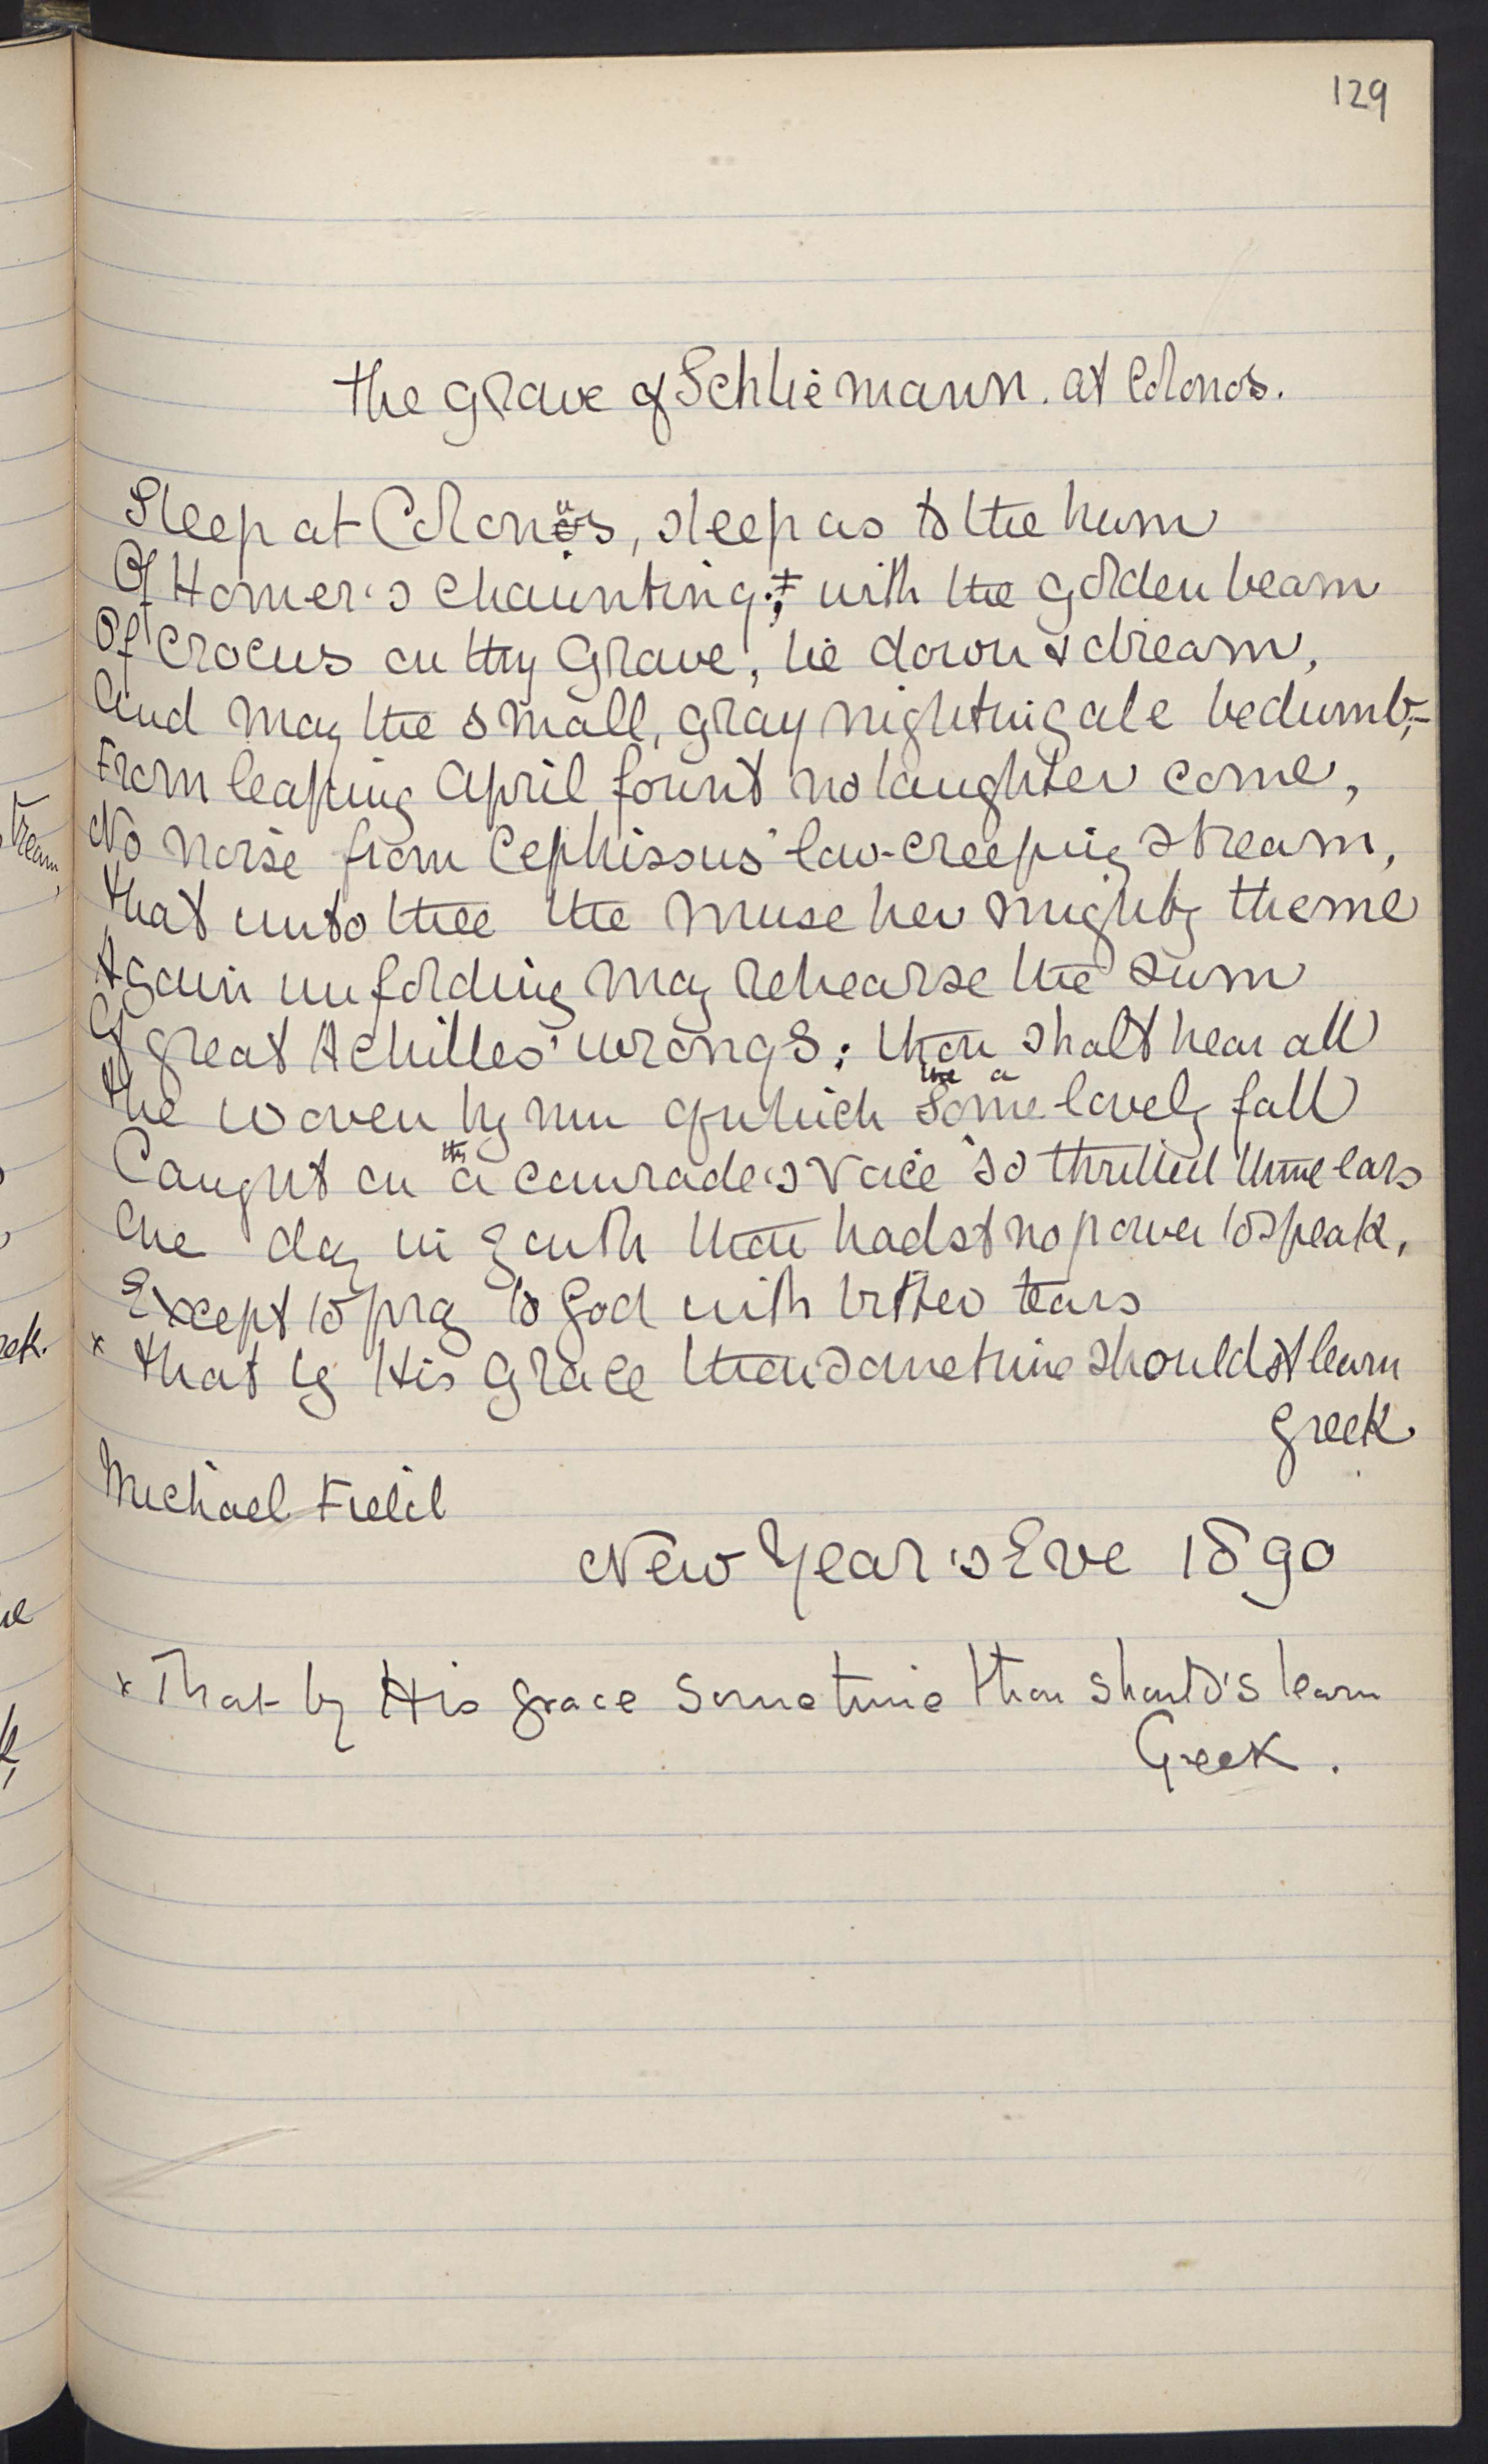 129
The Grave of Schliemann. at Colonos.
Sleep at Colonus, sleep as to the hum
Of Homer's chaunting; with the golden beam
Of crocus on thy Grave, lie down & dream,
And may the small, gray nightingale be dumb,-
From leaping April fount no laughter come,
No noise from Cephissus' low-creeping stream,
That unto thee the Muse her mighty theme
Again unfolding may rehearse the sum
Of great Achilles' wrongs: thou shalt hear all
the a
The woven hymn of which some lovely fall
thy
Caught on a comrade's voice so thrilled thine ears
One day in youth thou hadst no power to speak,
Except to pray to God with bitter tears
x That by His Grace thou sometime shouldst learn
Greek.
Michael Field
New Year's Eve 1890
x That by His grace sometime thou should's learn
Greek.
tream,
eek.